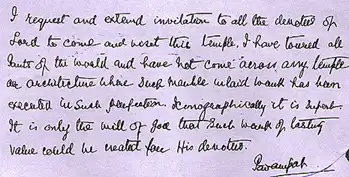 I request and extend invitation to all the devotees of
Lord to come and visit this temple. I have toured all
parts of the world and have not come across any temple
or architecture where such marble inlaid work has been
executed in such perfection. Iconographically it is superb.
It is only the will of God that such work of lasting
value could be created for His devotees.